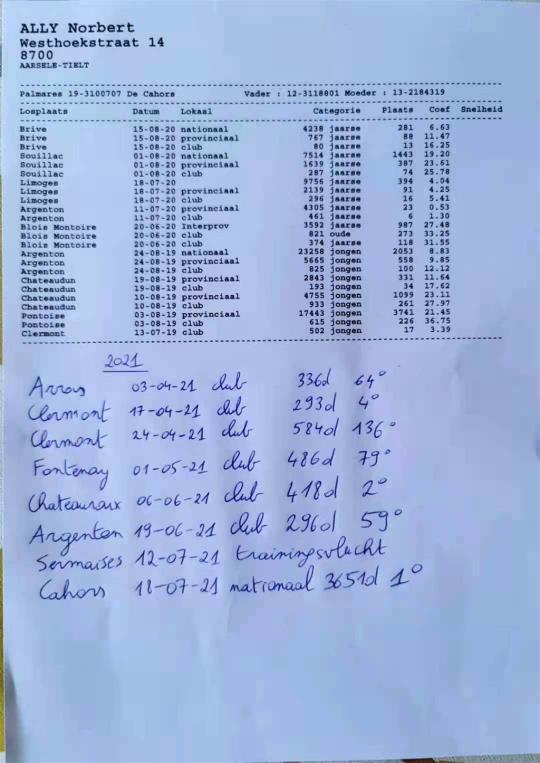 ALLY Norbert
Westhoekstraat 14
8700
AARSELE-TIELT
Palmares 19-3100707 De Cahors Vader : 12-3118801 Moeder : 13-2184319
Losplaats Datum Lokaal Categorie Plaats Coef Snelheid
Brive 15-08-20 nationaal 4238 jaarse 281 6.63
Brive 15-08-20 provinciaal 767 jaarse 88 11.47
Brive 15-08-20 club 80 jaarse 13 16.25
Souillac 01-08-20 nationaal 7514 jaarse 1443 19.20
Souillac 01-08-20 provinciaal 1639 jaarse 387 23.61
Souillac 01-08-20 club 287 jaarse 74 25.78
Limoges 18-07-20 9756 jaarse 394 4.04
Limoges 18-07-20 provinciaal 2139 jaarse 91 4.25
Limoges 18-07-20 club 296 jaarse 16 5.41
Argenton 11-07-20 provinciaal 4305 jaarse 23 0.53
Argenton 11-07-20 club 461 jaarse 6 1.30
Blois Montoire 20-06-20 Interprov 3592 jaarse 987 27.48
Blois Montoire 20-06-20 club 821 oude 273 33.25
Blois Montoire 20-06-20 club 374 jaarse 118 31.55
Argenton 24-08-19 nationaal 23258 jongen 2053 8.83
Argenton 24-08-19 provinciaal 5665 jongen 558 9.85
Argenton 24-08-19 club 825 jongen 100 12.12
Chateaudun 19-08-19 provinciaal 2843 jongen 331 11.64
Chateaudun 19-08-19 club 193 jongen 34 17.62
Chateaudun 10-08-19 provinciaal 4755 jongen 1099 23.11
Chateaudun 10-08-19 club 933 jongen 261 27.97
Pontoise 03-08-19 provinciaal 17443 jongen 3741 21.45
Pontoise 03-08-19 club 615 jongen 226 36.75
Clermont 13-07-19 club 502 jongen 17 3.39
2021
Arras 03-04-21 club 336d 64°
Clermont 17-04-21 club 293d 4°
Clermont 24-04-21 club 584d 136°
Fontenay 01-05-21 club 486d 79°
Chateauroux 06-06-21 club 418d 2°
Argenton 19-06-21 club 296d 59°
Sermaises 12-07-21 trainingsvlucht
Cahors 18-07-21 nationaal 3651d 1°